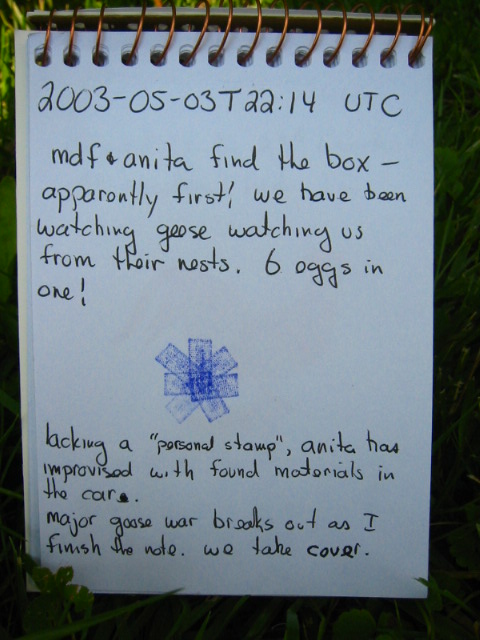 2003-05-03T22:14 UTC
mdf & anita find the box –
apparently first! we have been
watching geese watching us
from their nests. 6 eggs in
one!
lacking a "personal stamp", anita has
improvised with found materials in
the car.
major goose war breaks out as I
finish the note. we take cover.